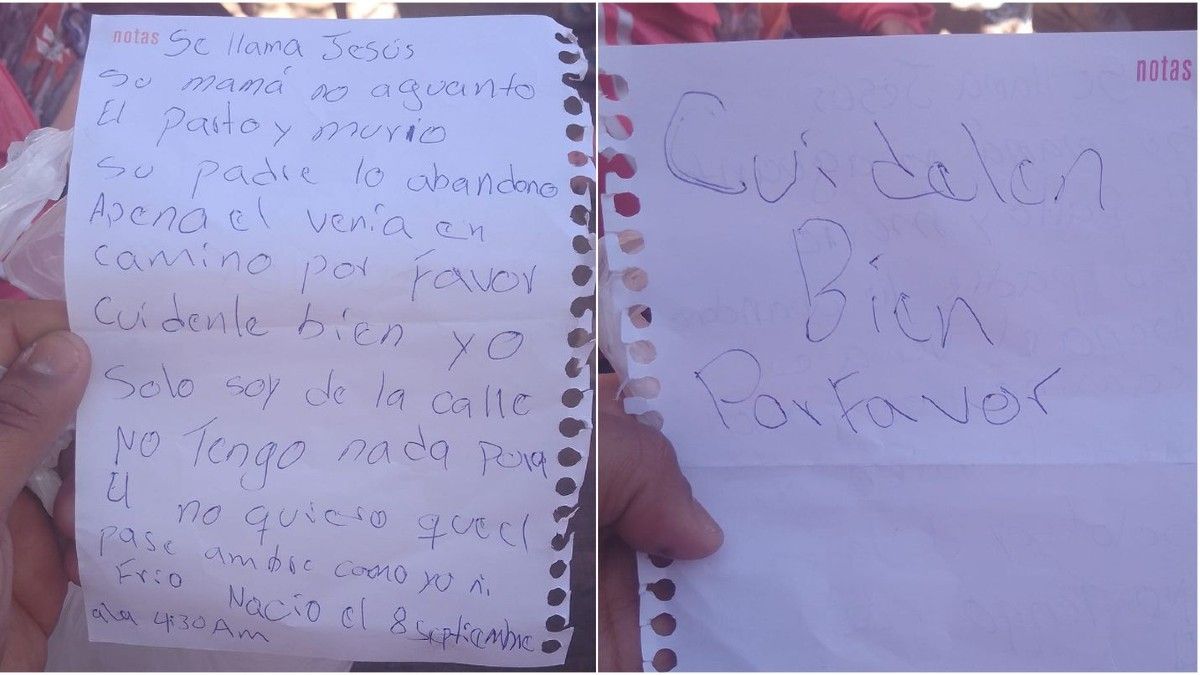 notas Se llama Jesús
su mamá no aguanto
El parto y murio
su padre lo abandono
Apena el venía en
camino por favor
Cuidenle bien yo
Solo soy de la calle
No Tengo nada para
El no quiero que el
pase ambre como yo ni
Frio Nacio el 8 septiembre
ala 4:30 Am
notas
Cuidelen
Bien
Por Favor